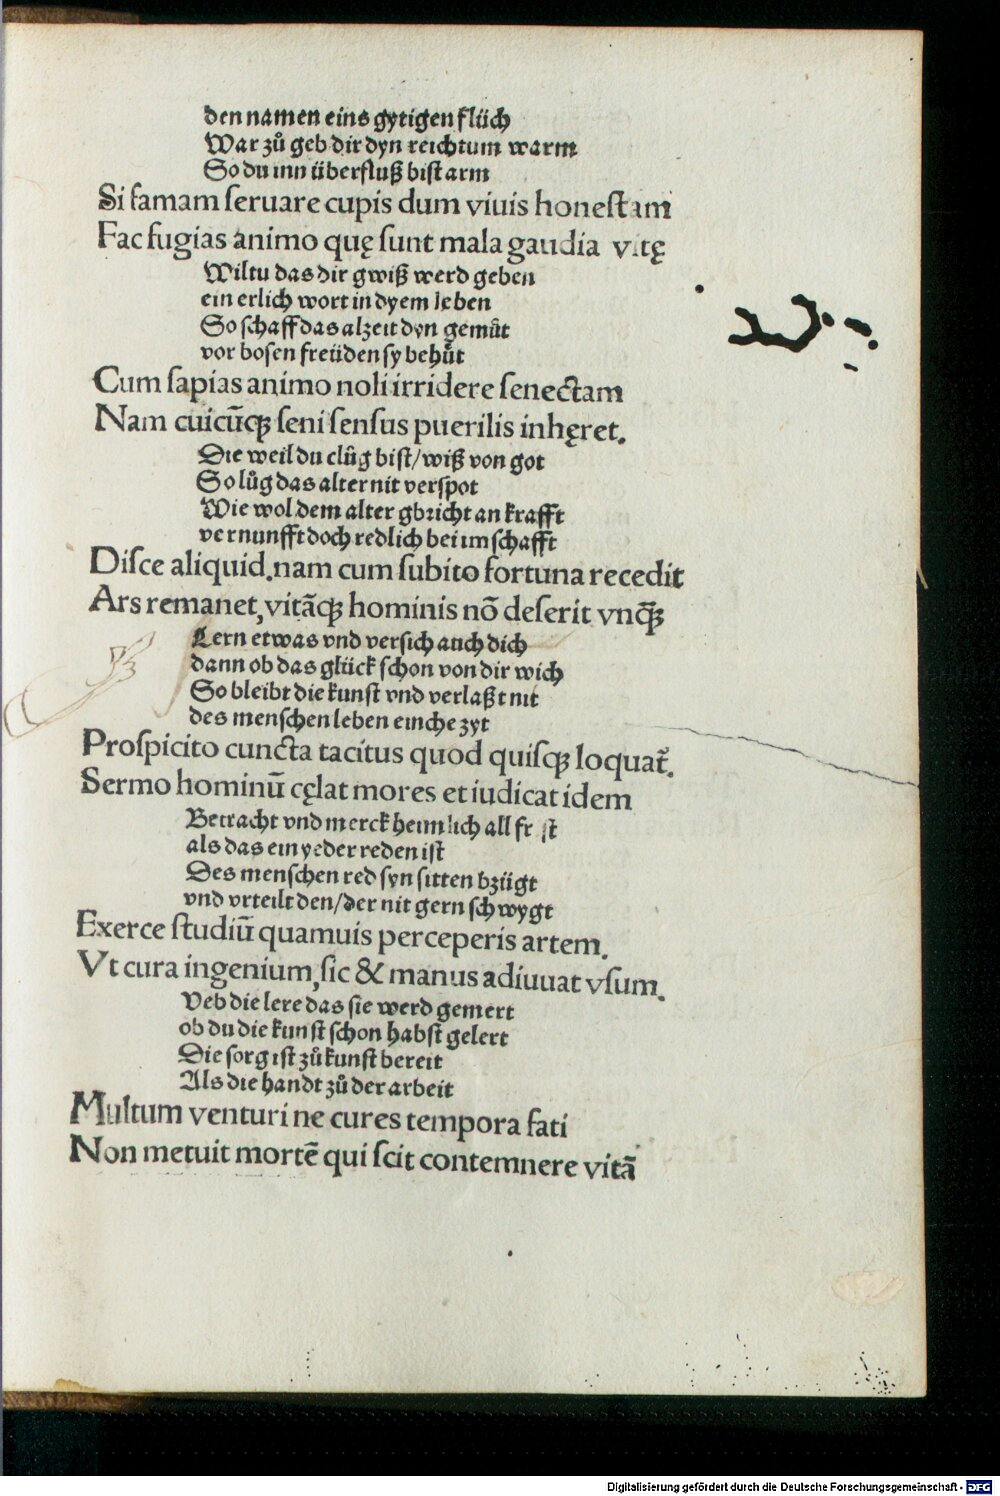 den namen eins gytigen flüch
War zů geb dir dyn reichtum warm
So du inn überfluß bist arm
Si famam ſeruare cupis dum viuis honeſtam
Fac fugias animo quę ſunt mala gaudia vitę
Wiltu das dir gwiß werd geben
ein erlich wort in dyem leben
So ſchaff das alzeit dyn gemůt
vor boſen freüden ſy behůt
Cum ſapias animo noli irridere ſenectam
Nam cuicūcꝙ ſeni ſenſus puerilis inhęret.
Die weil du clůg biſt/wiß von got
So lůg das alter nit verſpot
Wie wol dem alter gbricht an krafft
vernunfft doch redlich bei im ſchafft
Diſce aliquid.nam cum ſubito fortuna recedit
Ars remanet,vitācꝙ hominis nō deſerit vnꝗ̄
Lern etwas vnd verſich auch dich
dann ob das glück ſchon von dir wich
So bleibt die kunſt vnd verlaßt nit
des menſchen leben einche zyt
Proſpicito cuncta tacitus quod quiſcꝙ loquat᷑.
Sermo hominū cęlat mores et iudicat idem
Betracht vnd merck heimlich all friſt
als das ein yeder reden iſt
Des menſchen red ſyn ſitten bzügt
vnd vrteilt den/der nit gern ſchwygt
Exerce ſtudiū quamuis perceperis artem.
Vt cura ingenium,ſic & manus adiuuat vſum.
Veb die lere das ſie werd gemert
ob du die kunſt ſchon habſt gelert
Die ſorg iſt zů kunſt bereit
Als die handt zů der arbeit
Multum venturi ne cures tempora fati
Non metuit mortē qui ſcit contemnere vitā
Digitalisierung gefördert durch die Deutsche Forschungsgemeinschaft - DFG